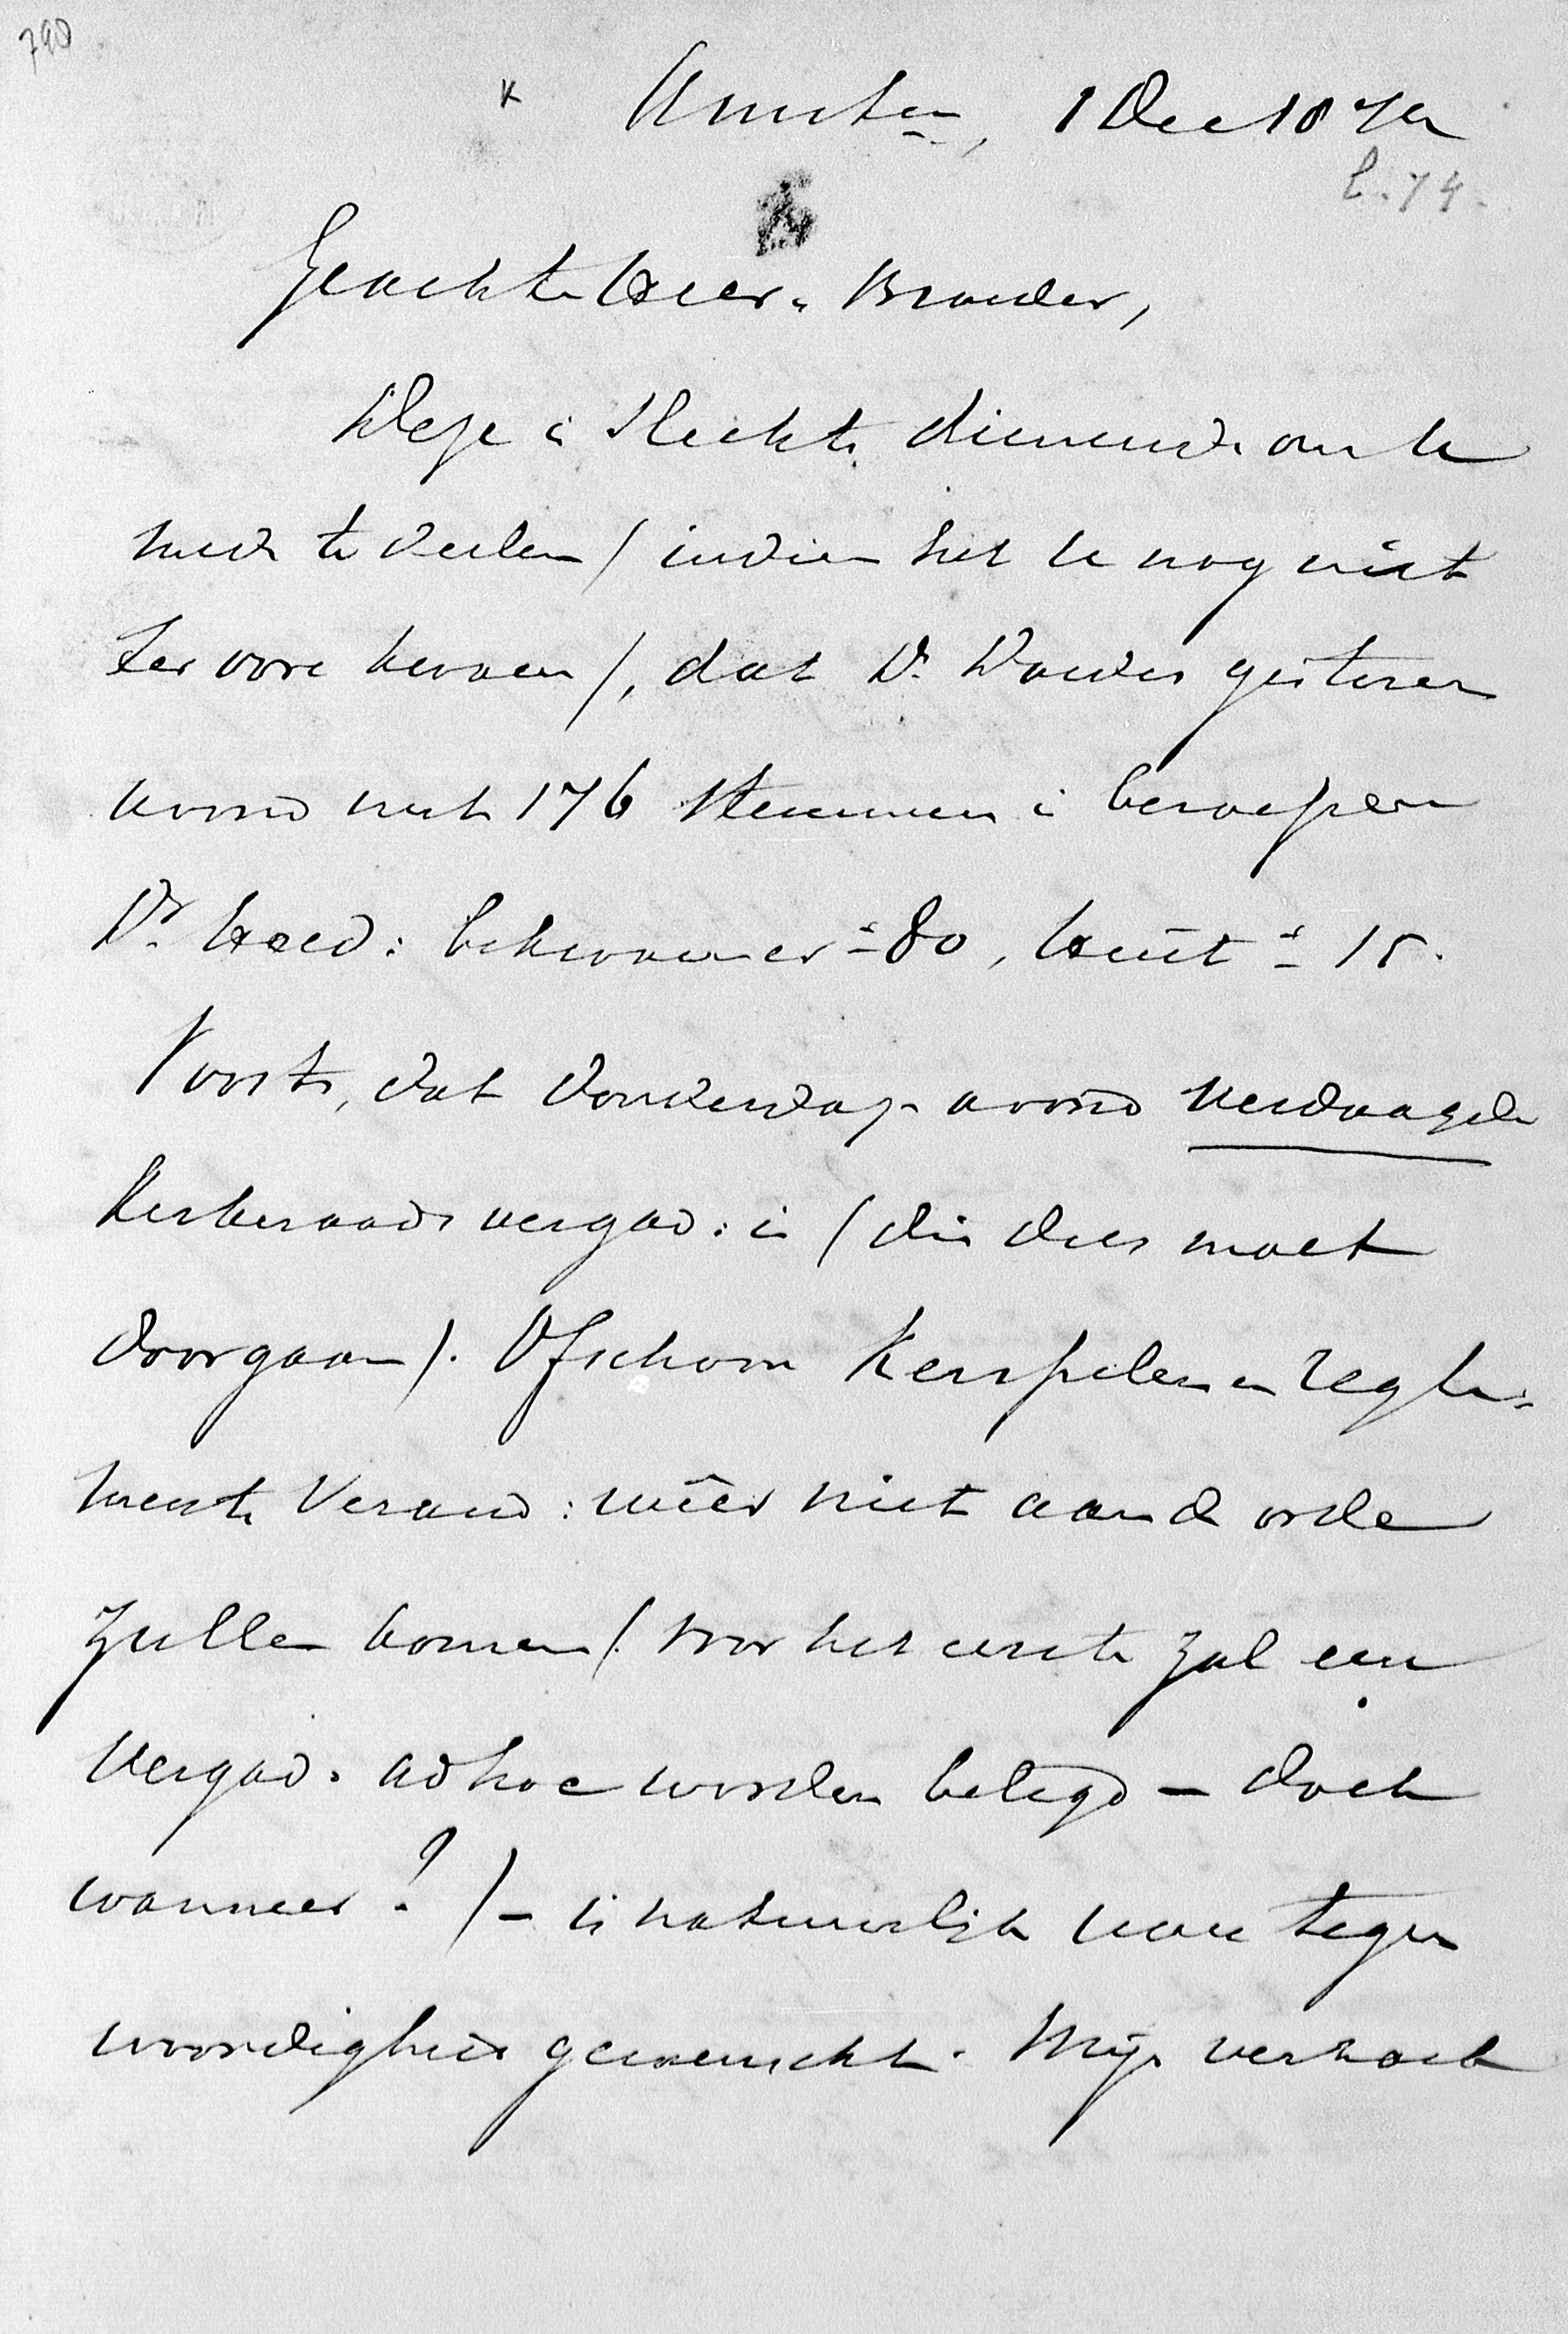 790
K Amst., 1 Dec 1874
b. 74.
Geachte Heer & Broeder,
Deze is slechts dienende om U
mede te deelen / indien het U nog niet
ter oore kwam /, dat Ds. gisteren
avond met 176 stemmen is beroepen
Ds. Hoed: bekwam er 80, 15.
Voorts, dat Donderdag avond verdaagde
Kerkeraads vergad: is / die dus moet
doorgaan /. Ofschoon Kerspelen en regle=
ments Verand: wêer niet aan de orde
zullen komen / voor het eerste zal een
vergad: ad hoc worden belegd – doch
wanneer? / – is natuurlijk uwe tegen
woordigheid gewenscht. Mijn verzoek